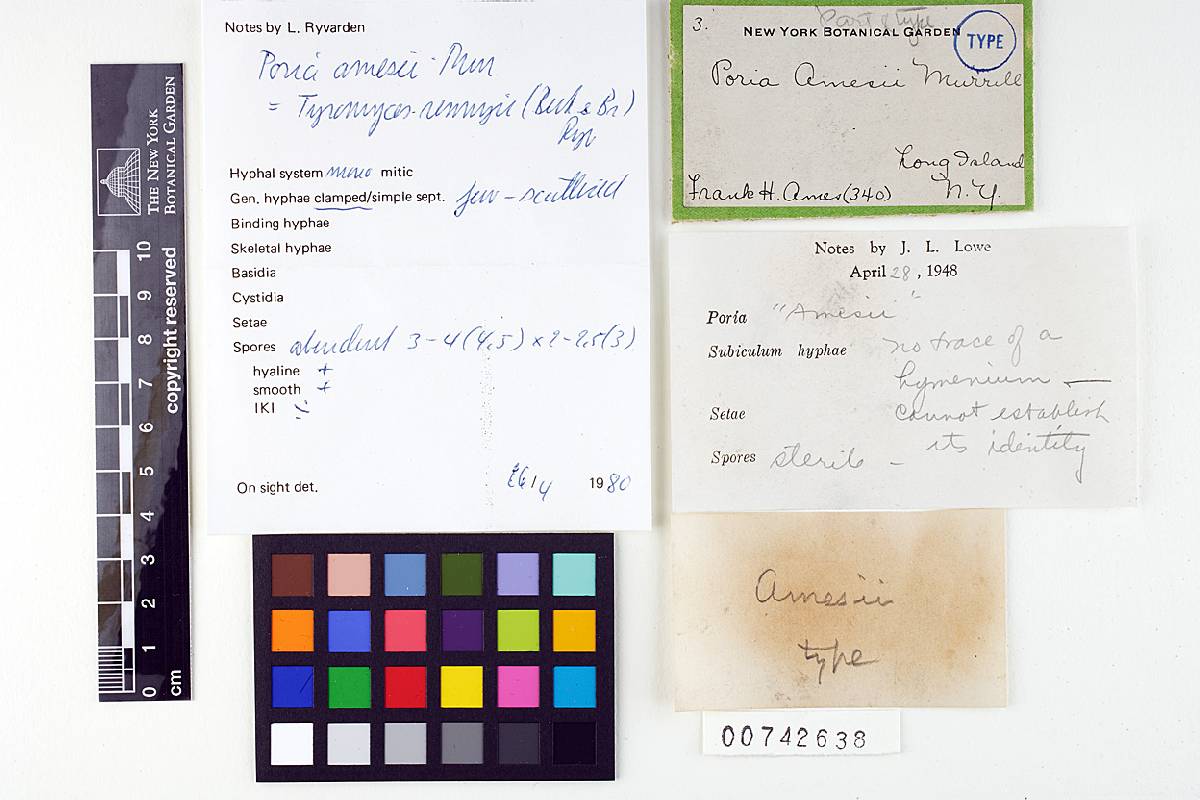 THE NEW YORK
BOTANICAL GARDEN
copyright reserved
10
9
8
7
6
5
4
3
2
1
0
cm
Notes by L. Ryvarden
Poria amesii Murr
= Tyromyces (Berk & Br)
Ryv
Hyphal system mono mitic
Gen. hyphae clamped/simple sept. few - scattered
Binding hyphae
Skeletal hyphae
Basidia
Cystidia
Setae
Spores abundant 3-4(4,5) x 2-2,5(3)
hyaline +
smooth +
IKI
On sight det. 26/4 1980
Part of type
3. NEW YORK BOTANICAL GARDEN
TYPE
Poria Amesii Murrill
Long Island
Frank H. Ames (340) N.Y.
Notes by J. L. Lowe
April 28, 1948
Poria "Amesii"
Subiculum hyphae no trace of a
hymenium —
Setae cannot establish
its identity
Spores sterile -
Amesii
type
00742638